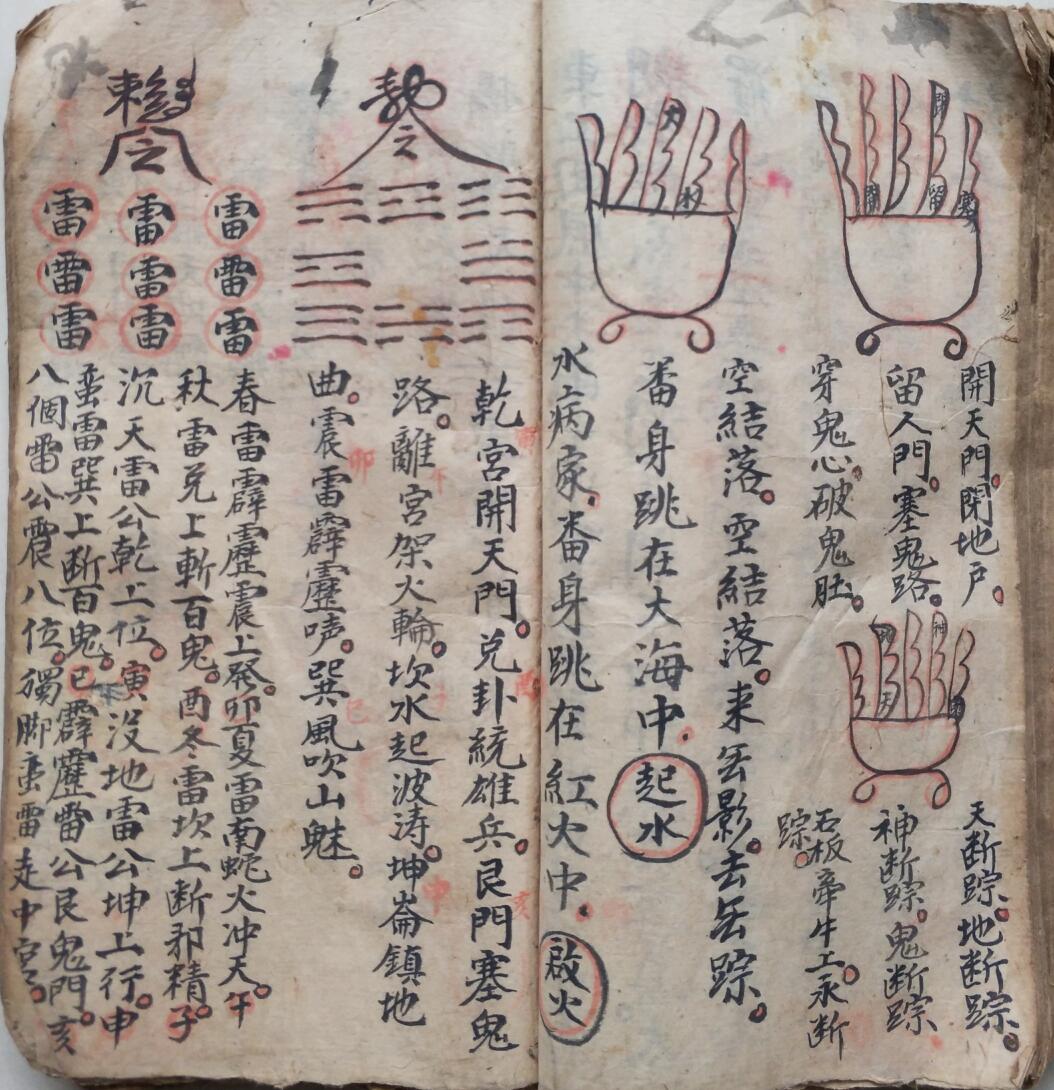 開天門。閉地户。
留人門。塞鬼路。
穿鬼心。破鬼肚。
天断踪。地断踪。
神断踪。鬼断踪
石板牵牛上。永断
踪。
空結落。空結落。来无影。去无踪。
番身跳在大海中。起水
水病家。番身跳在紅火中。啟火
乾宮開天門。兑卦統雄兵。艮門塞鬼
路。離宮架火輪。坎水起波涛。坤崙鎮地
曲。震雷霹靂声。巽風吹山魅。
令
雷
雷
雷
雷
雷
雷
雷
雷
雷
春雷霹靂震上發。卯夏雷南蛇火冲天。午
秋雷兑上斬百鬼。酉冬雷坎上断邪精。子
沉天雷公乾上位。寅没地雷公坤上行。申
蛮雷巽上断百鬼。巳霹靂雷公艮鬼門。亥
八個雷公震八位。獨脚蛮雷走中宫。